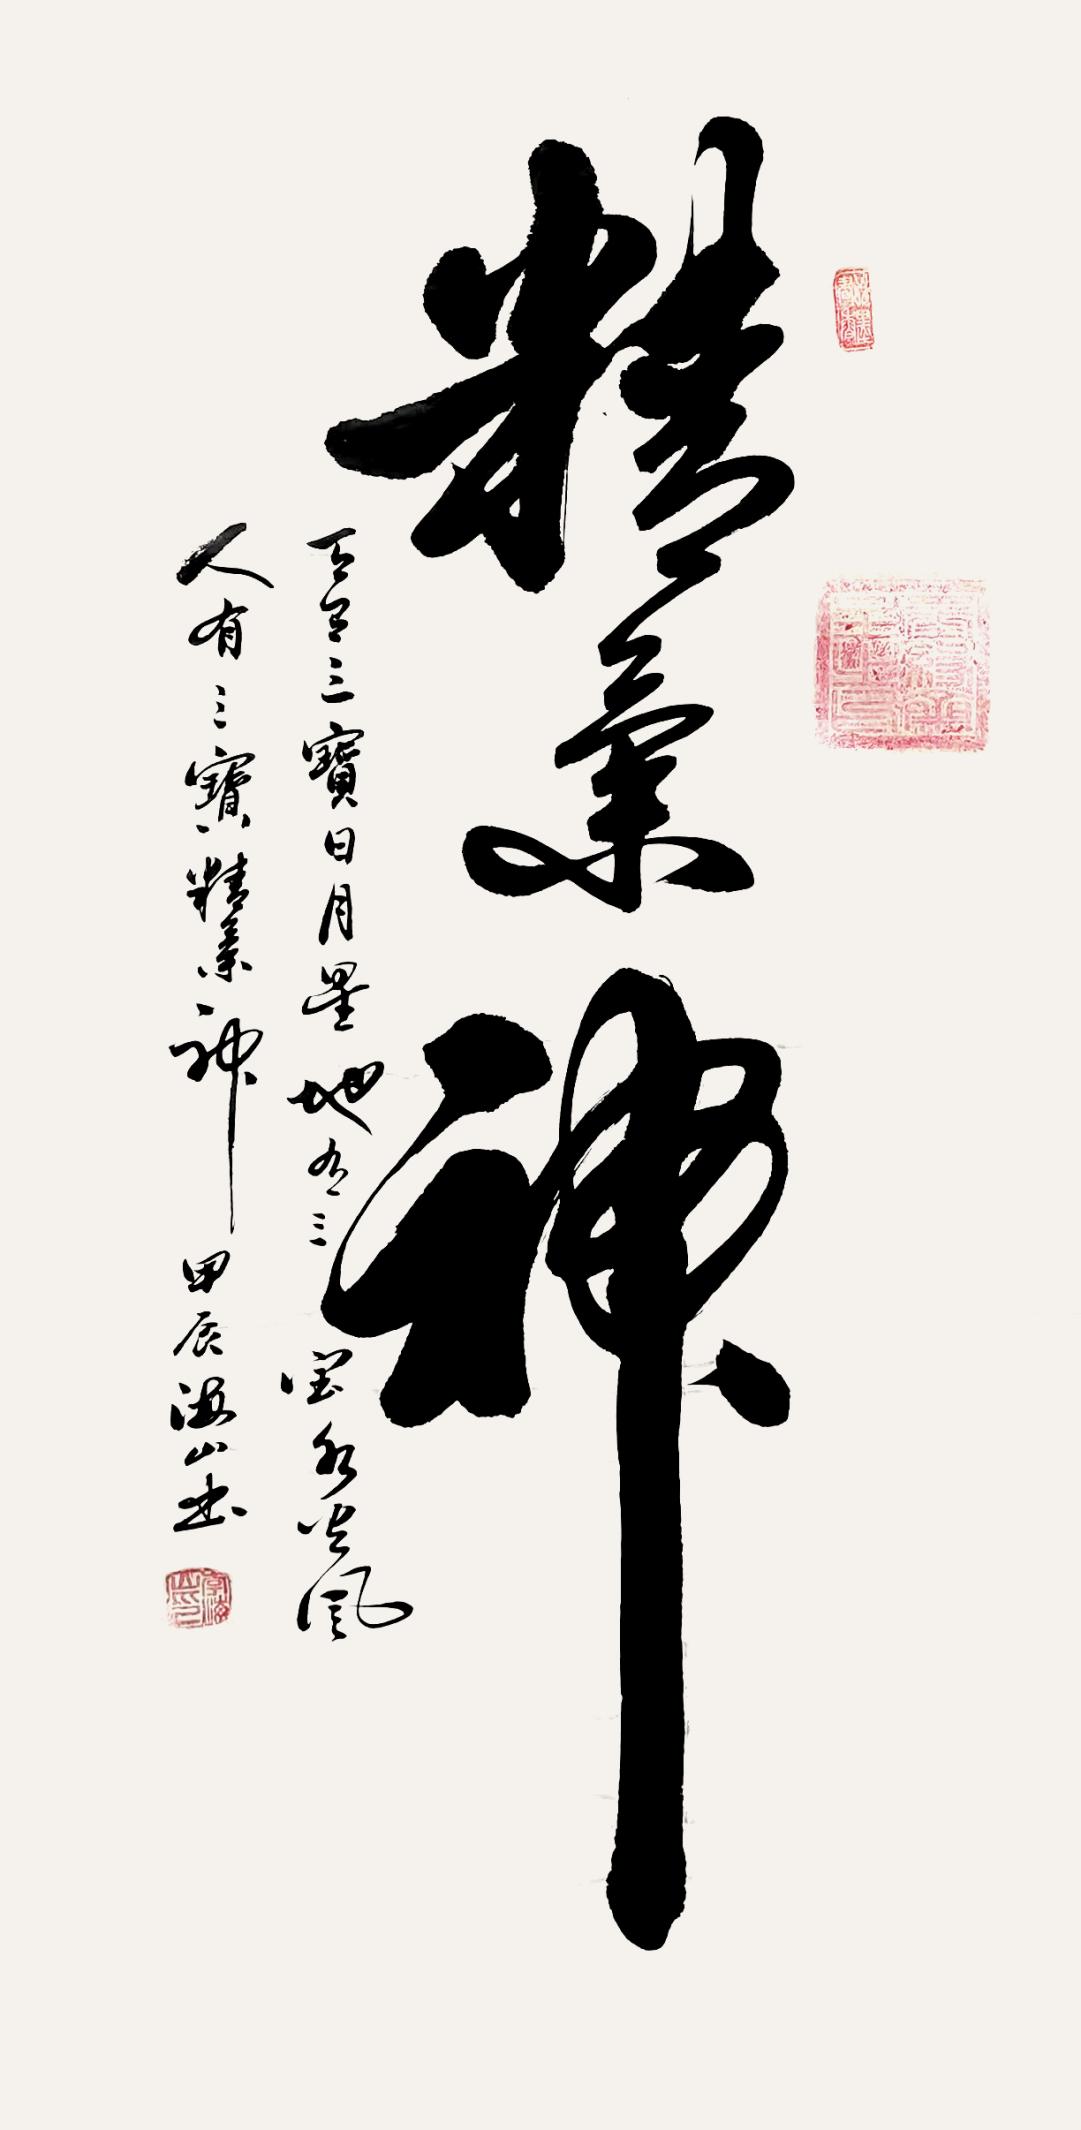 精氣神
天有三寶日月星地有三宝水火風
人有三寶精氣神 甲辰海山书